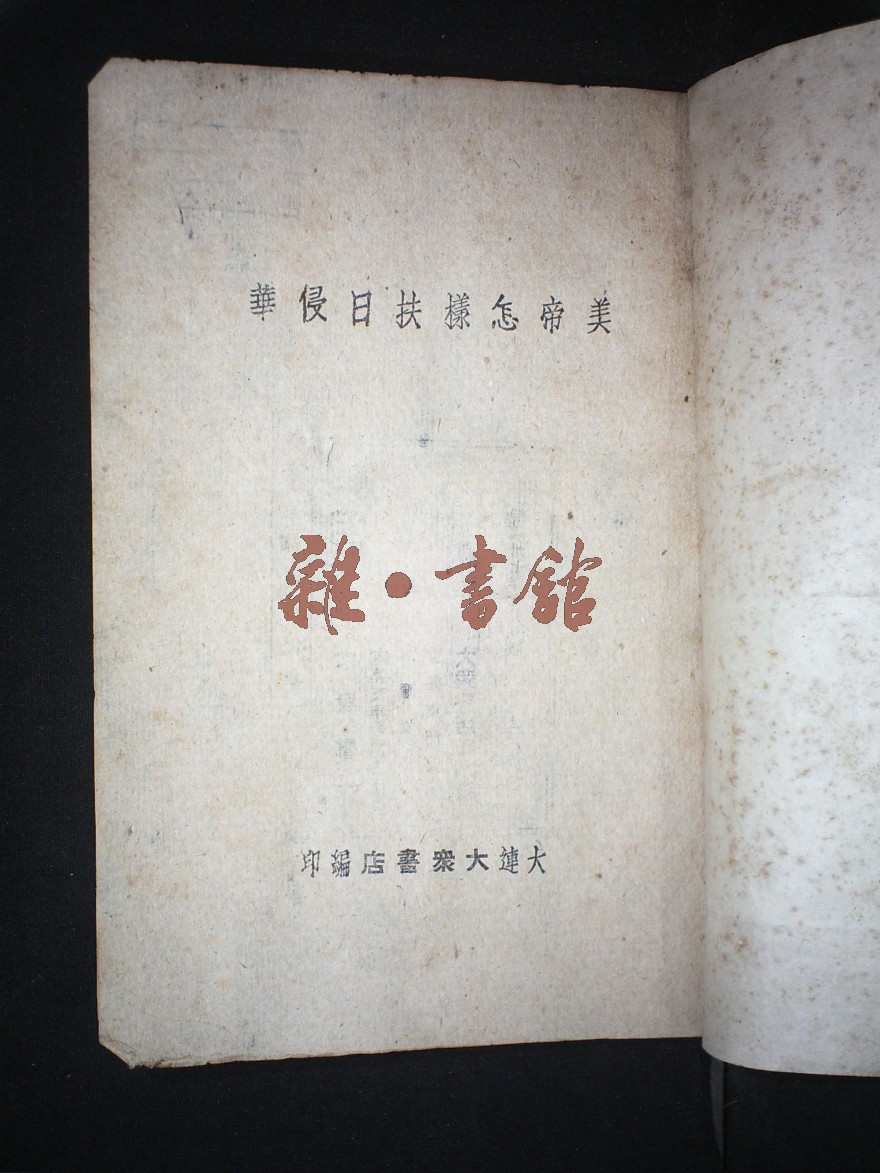 美帝怎樣扶日侵華
雜·書館
大連大衆書店編印